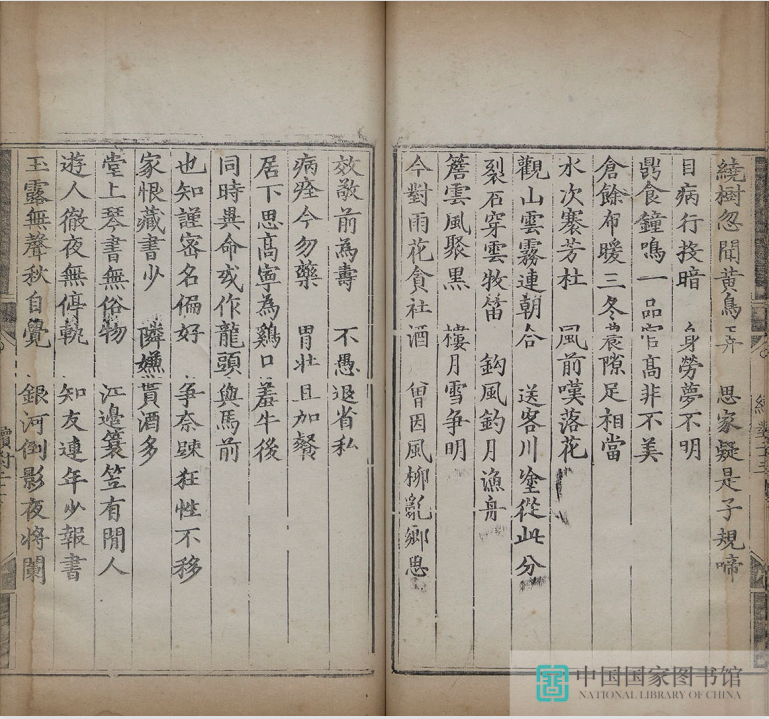 繞樹忽聞黃鳥弄 思家疑是子規啼
目病行投暗 身勞夢不明
鼎食鐘鳴一品官高非不美
倉餘布暖三冬農隙足相當
水次搴芳杜 風前嘆落花
觀山雲霧連朝合 送客川塗從此分
裂石穿雲牧笛 鈎風釣月漁舟
簷雲風聚黑 樓月雪爭明
今對雨花貪社酒 曾因風柳亂鄉思
效敵前為壽 不愚退省私
病痊今勿藥 胃壯且加餐
居下思高寧為鷄口羞牛後
同時異命或作龍頭與馬前
也知謹密名偏好 爭奈踈狂性不移
家恨藏書少 隣嫌貰酒多
堂上琴書無俗物 江邊簑笠有閒人
遊人徹夜無停軌 知友連年少報書
玉露無聲秋自覺 銀河倒影夜將闌
中国国家图书馆
NATIONAL LIBRARY OF CHINA